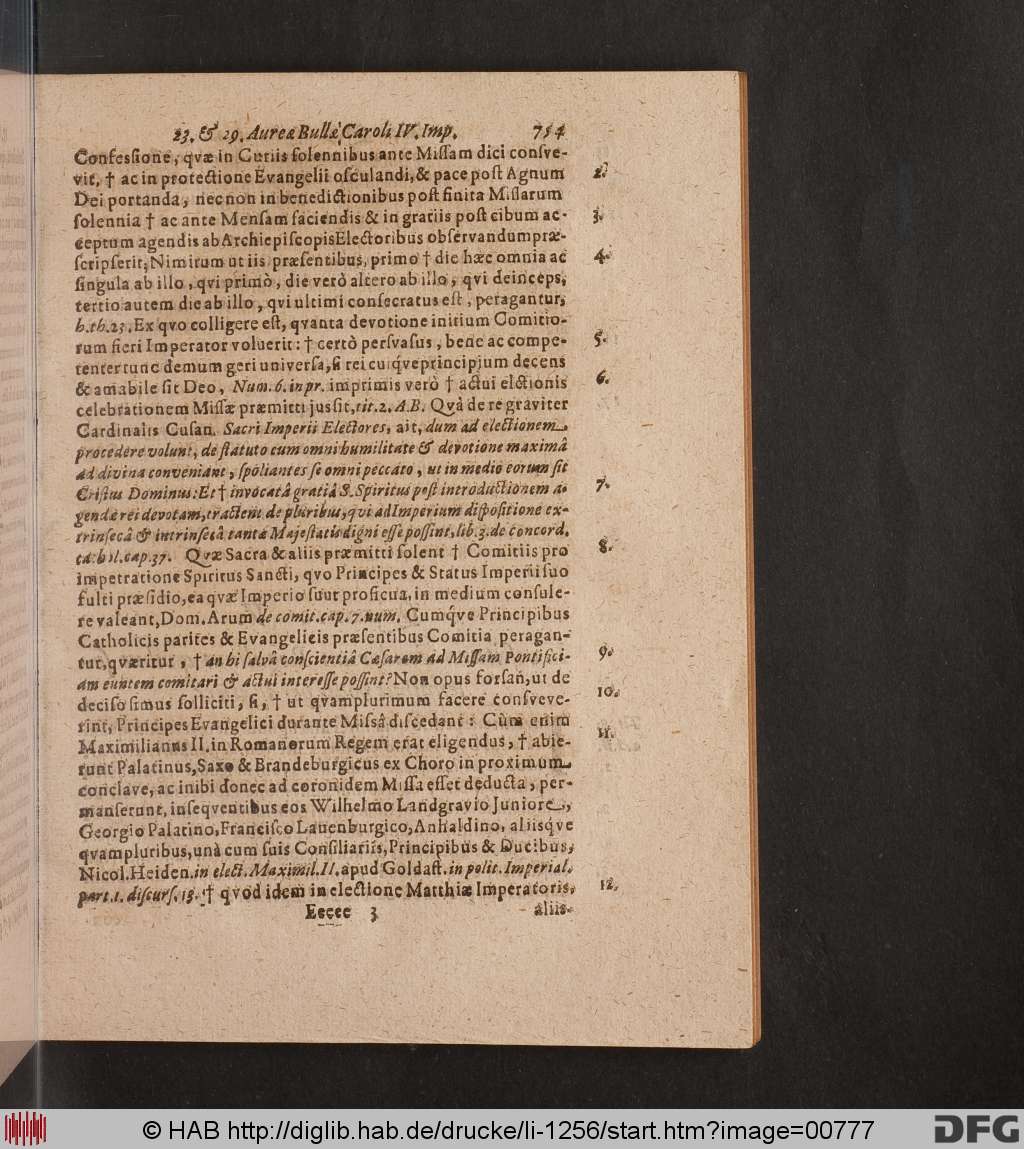 23. & 29. Aureæ Bullæ Caroli IV. Imp. 754
Confessione, qvæ in Curiis solennibus ante Missam dici consve-
vit, † ac in protectione Evangelii osculandi, & pace post Agnum 2.
Dei portanda, nec non in benedictionibus post finita Missarum
solennia † ac ante Mensam faciendis & in gratiis post cibum ac- 3.
ceptum agendis ab Archiepiscopis Electoribus observandum præ-
scripserit; Nimirum ut iis præsentibus, primo † die hæc omnia ac 4.
singula ab illo, qvi primò, die verò altero ab illo, qvi deinceps,
tertio autem die ab illo, qvi ultimi consecratus est, peragantur,
h. th. 23. Ex qvo colligere est, qvanta devotione initium Comitio-
rum fieri Imperator voluerit: † certò persvasus, bene ac compe- 5.
tenter tunc demum geri universa, si rei cuiq́ve principium decens
& amabile sit Deo, Num. 6. in pr. imprimis verò † actui elctionis 6.
celebrationem Missæ præmitti jussit, tit. 2. A.B. Qvà de re graviter
Cardinalis Cusan. Sacri Imperii Electores, ait, dum ad electionem
procedere volunt, de statuto cum omni humilitate & devotione maximâ
ad divina conveniant, spoliantes se omni peccato, ut in medio eorum sit
Cristus Dominus: Et † invocatâ gratiâ S. Spiritus post introductionem a- 7.
gendæ rei devotam, tractent de pluribus, qvi ad Imperium dispositione ex-
trinsecâ & intrinsecâ tantæ Majestatis digni esse possint, lib. 3. de concord.
cathol. cap. 37. Qvæ Sacra & aliis præmitti solent † Comitiis pro 8.
impetratione Spiritus Sancti, qvo Principes & Status Imperii suo
fulti præsidio, ea qvæ Imperio sunt proficua, in medium consule-
re valeant, Dom. Arum de comit. cap. 7. num. Cumq́ve Principibus
Catholicis parites & Evangelicis præsentibus Comitia peragan-
tur, qværitur, † an hi salvâ conscientiâ Cæsarem ad Missam Pontifici- 9.
am euntem comitari & actui interesse possint? Non opus forsan, ut de
deciso simus solliciti, si, † ut qvamplurimum facere consveve- 10.
rint, Principes Evangelici durante Missâ discedant: Cùm enim
Maximilianus II. in Romanorum Regem erat eligendus, † abie- 11.
runt Palatinus, Saxo & Brandeburgicus ex Choro in proximum
conclave, ac inibi donec ad coronidem Missa esset deducta, per-
manserunt, inseqventibus eos Wilhelmo Landgravio Juniore,
Georgio Palatino, Francisco Lauenburgico, Anhaldino, aliisq́ve
qvampluribus, unà cum suis Consiliariis, Principibus & Ducibus,
Nicol. Heiden. in elect. Maximil. II. apud Goldast. in polit. Imperial.
part. 1. discurs. 13. † qvod idem in electione Matthiæ Imperatoris, 12.
Eeeee 3 aliis-
© HAB http://diglib.hab.de/drucke/li-1256/start.htm?image=00777
DFG